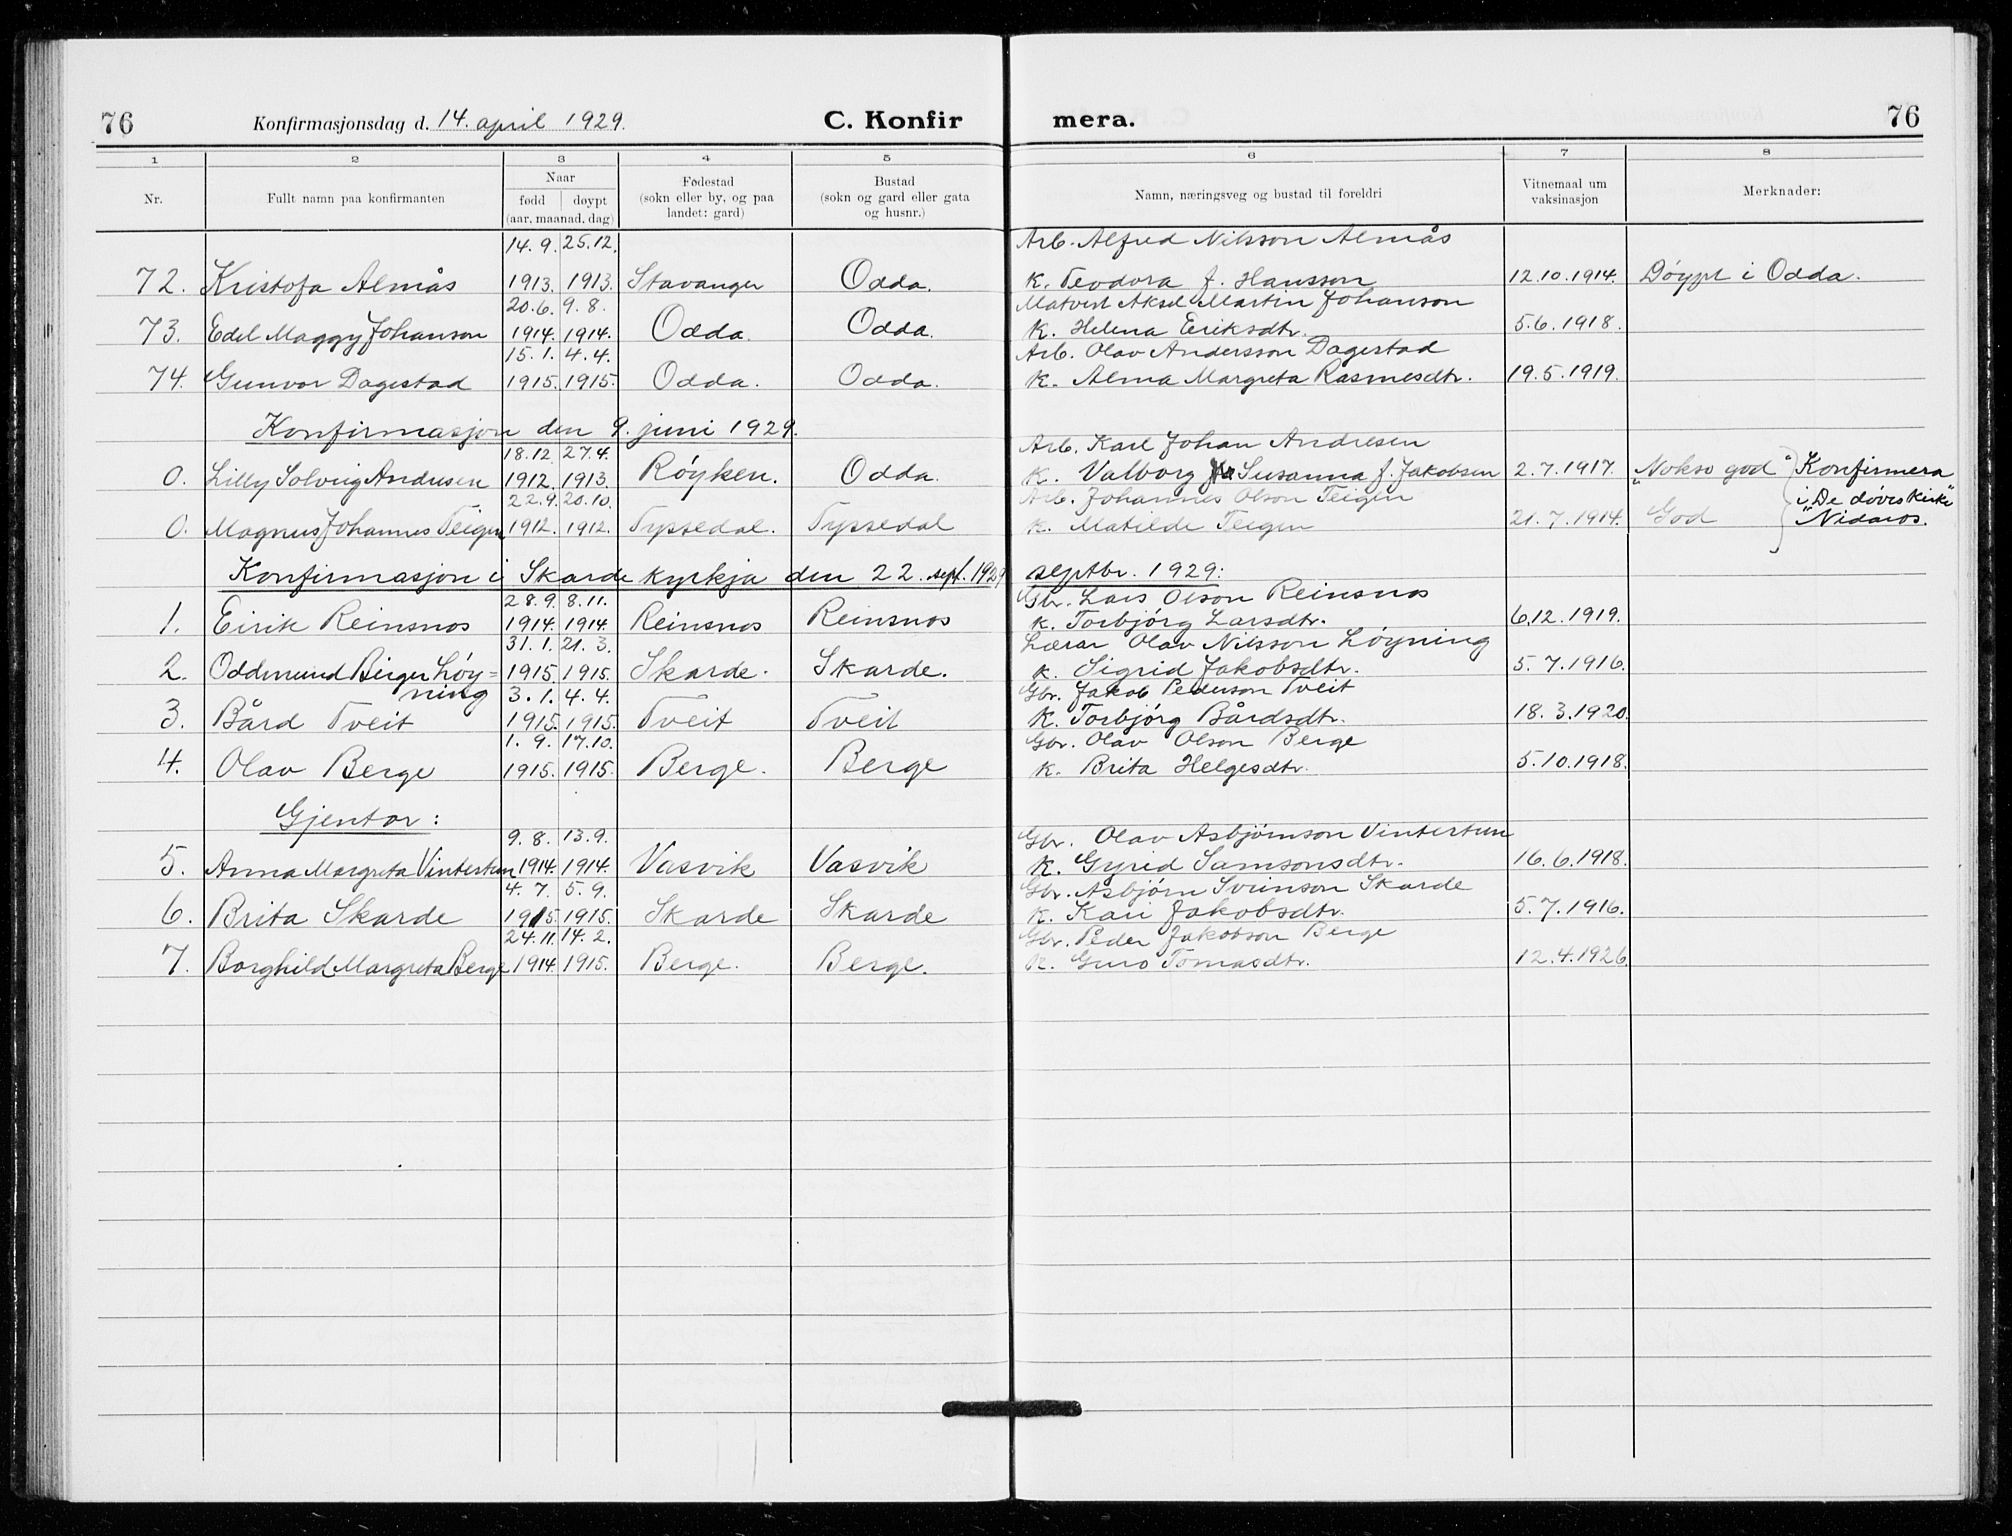 76 Konfirmasjonsdag d. 14. april 1929. C. Konfir mera. 76
1 2 3 4 5 6 7 8
Nr. Fullt namn paa konfirmanten Naar Fødestad Bustad Namn, næringsveg og bustad til foreldri Vitnemaal um vaksinasjon Merknader:
fødd døypt (sokn eller by, og paa landet: gard) (sokn og gard eller gata og husnr.)
(aar, maanad, dag)
14. 9. 25. 12. Arb. Alfred Nilsson Almås
72. Kristofa Almås 1913. 1913. Stavanger Odda. K. Teodora f. Hansson 12.10.1914. Døypt i Odda.
20. 6. 9. 8. Matvest Aksel Martin Johanson
73. Edel Maggy Johanson 1914. 1914. Odda. Odda. K. Helena Eriksdtr. 5.6.1918.
15. 1. 4. 4. Arb. Olav Andersson Dagestad
74. Gunvor Dagestad 1915. 1915. Odda. Odda. K. Alma Margreta Rasmesdtr. 19.5.1919.
Konfirmasjon den 9. juni 1929.
18. 12. 27. 4. Arb. Karl Johan Andresen
0. Lilly Solveig Andresen 1912. 1913. Røyken. Odda. K. Valborg Susanna f. Jakobsen 2.7.1917. "Nokso god" Konfirmera
22. 9. 20. 10. Arb. Johannes Olson Teigen i "De døves Kirke"
0. Magnus Johannes Teigen 1912. 1912. Tyssedal. Tyssedal K. Matilde Teigen 21.7.1914. God Nidaros.
Konfirmasjon i Skarde kyrkja den 22. sept. 1929 septbr. 1929:
28. 9. 8. 11. Gbr. Lars Olson Reinsnos
1. Eirik Reinsnos 1914. 1914. Reinsnos Reinsnos K. Torbjørg Larsdtr. 6.12.1919.
31. 1. 21. 3. Lærar Olav Nilsson Løyning
2. Oddmund Birger Løy= 1915. 1915. Skarde. Skarde. K. Sigrid Jakobsdtr. 5.7.1916.
ning 3. 1. 4. 4. Gbr. Jakob Pederson Tveit
3. Bård Tveit 1915. 1915. Tveit Tveit K. Torbjørg Bårdsdtr. 18.3.1920.
1. 9. 17. 10. Gbr. Olav Olson Berge
4. Olav Berge 1915. 1915. Berge. Berge K. Brita Helgesdtr. 5.10.1918.
Gjentor:
9. 8. 13. 9. Gbr. Olav Asbjørnson Vintertun
5. Anna Margreta Vintertun 1914. 1914. Vasvik Vasvik K. Gyrid Samsonsdtr. 16.6.1918.
4. 7. 5. 9. Gbr. Asbjørn Sveinson Skarde
6. Brita Skarde 1915. 1915. Skarde Skarde K. Kari Jakobsdtr. 5.7.1916.
24. 11. 14. 2. Gbr. Peder Jakobson Berge
7. Borghild Margreta Berge 1914. 1915. Berge. Berge. K. Guro Tomasdtr. 12.4.1926.